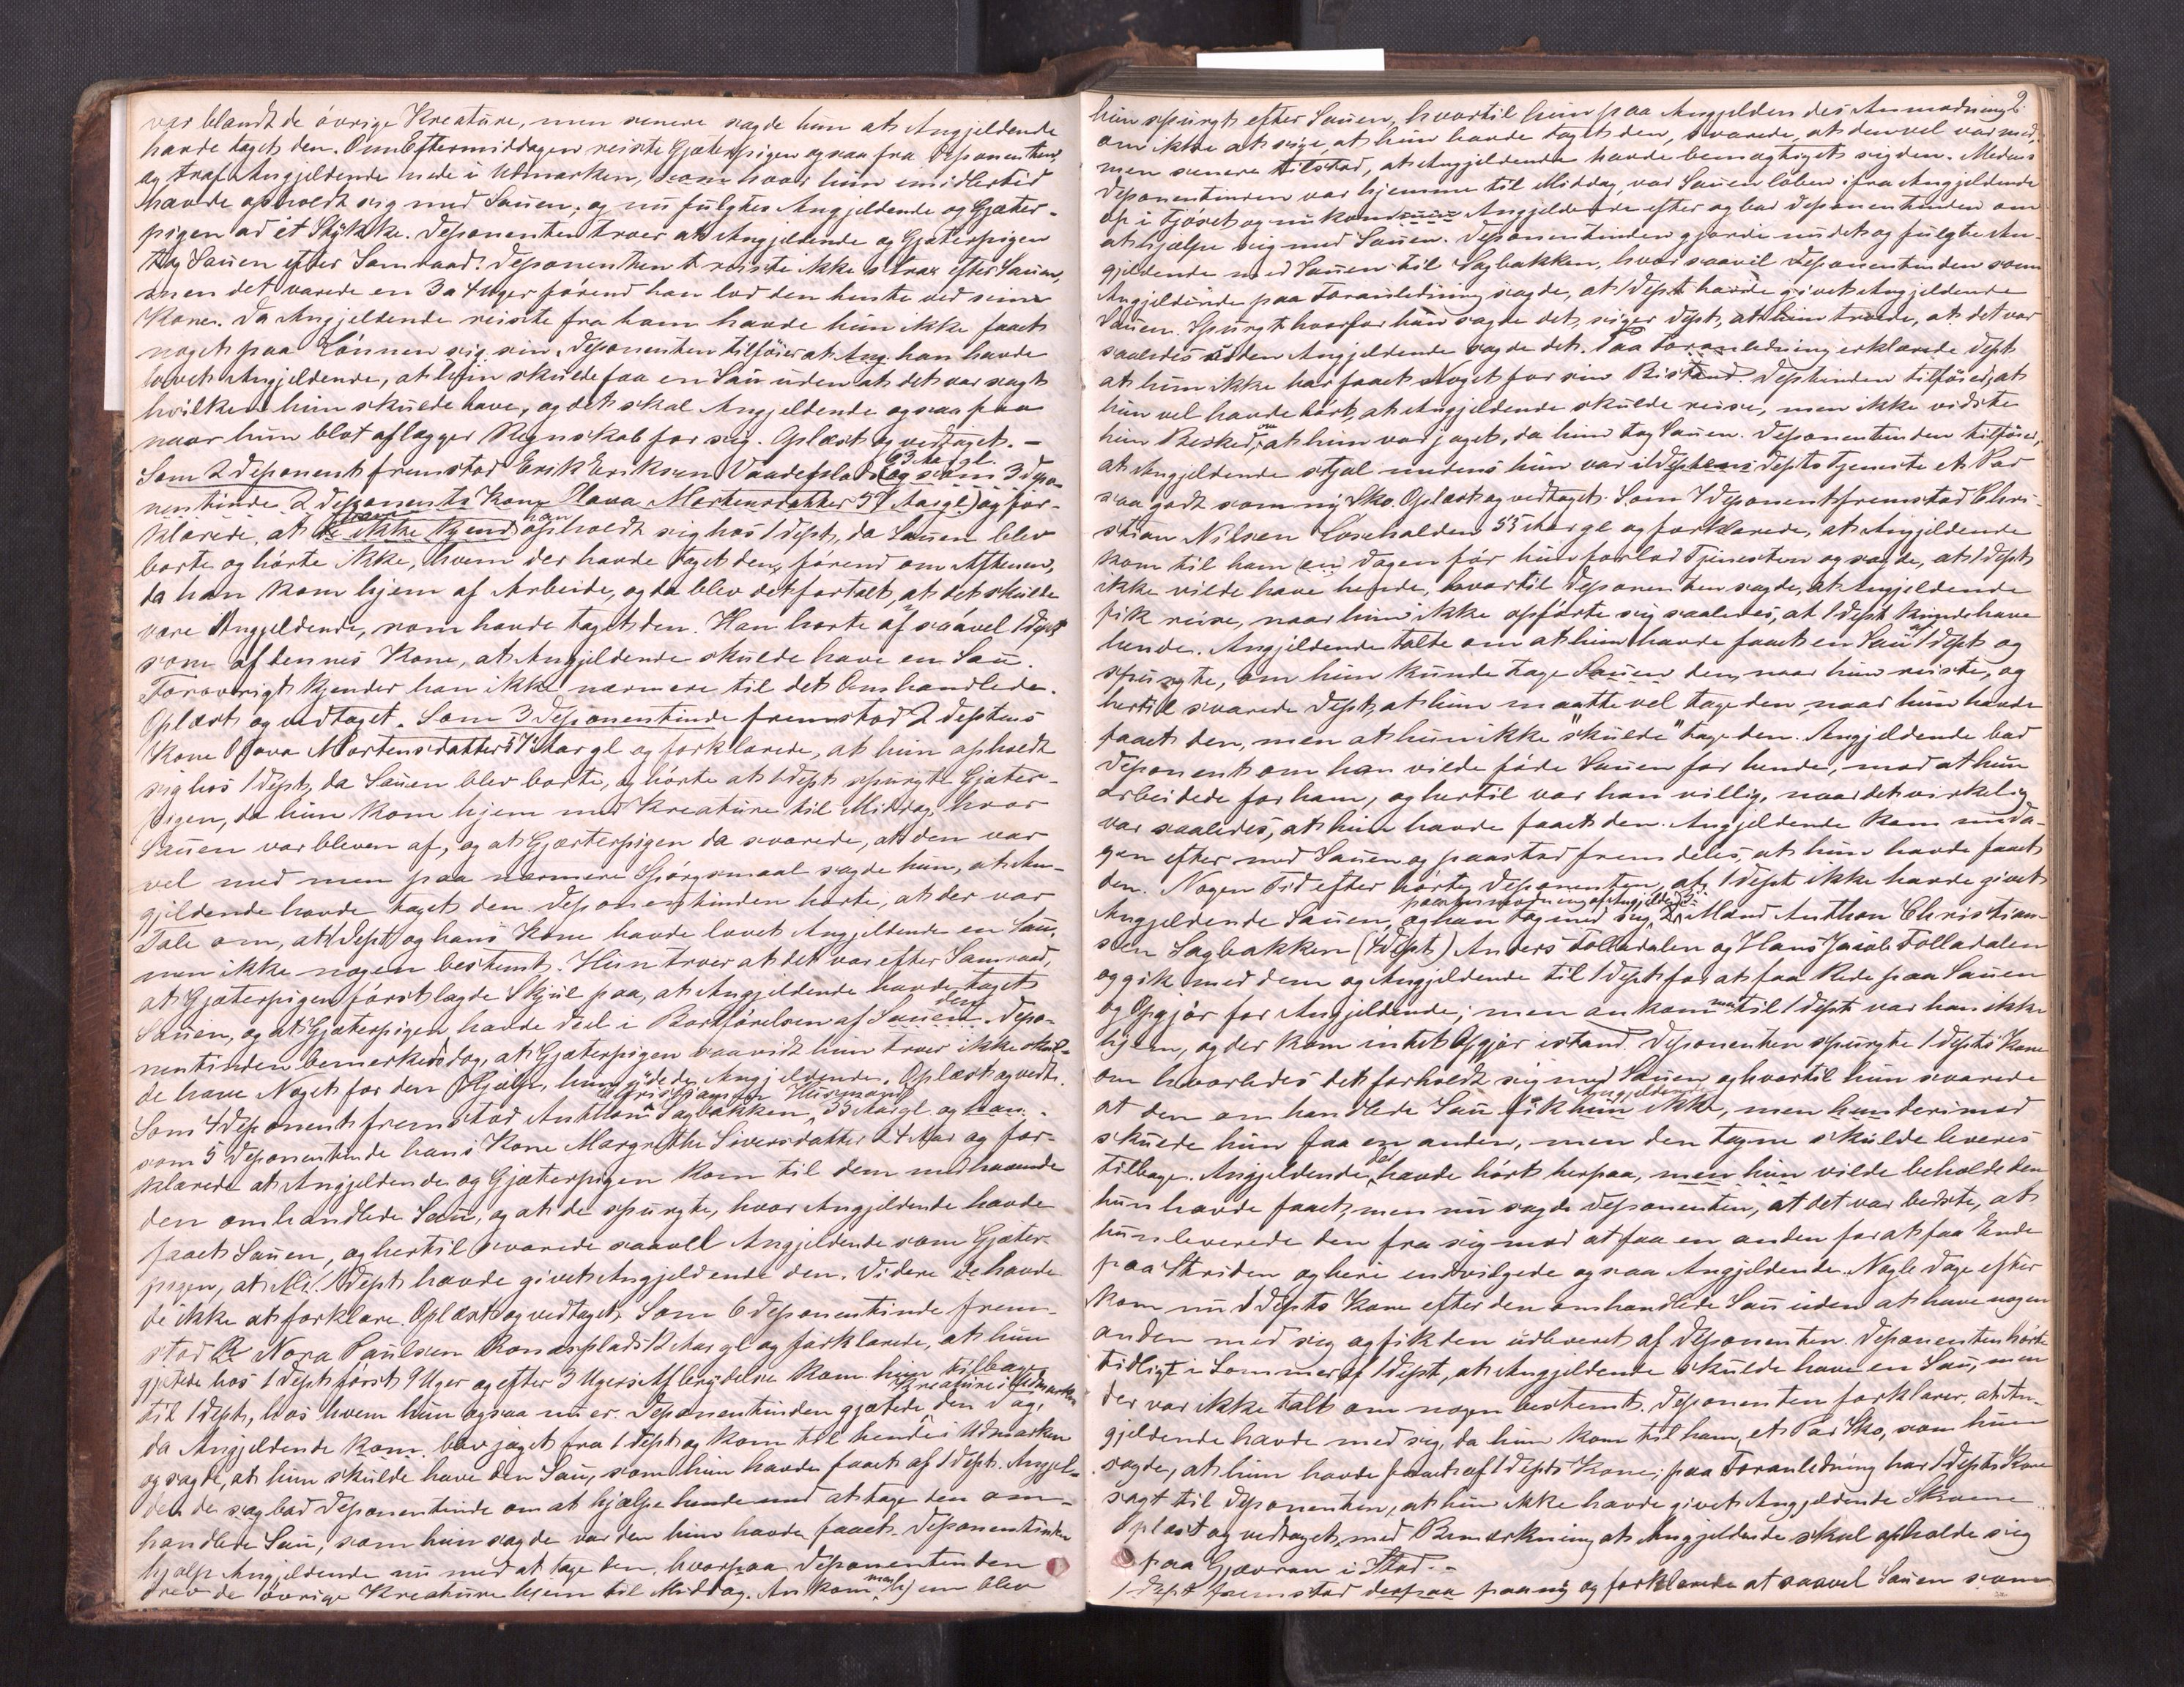 var blandt de øvrige Kreature, men senere sagde hun at Angjeldende
havde taget den. Om Eftermiddagen reiste Gjæterpigen ogsaa fra Deponenten,
og traf Angjeldende nede i Udmarken, hvor hun imidlertid
havde opholdt sig med Sauen, og nu fulgtes Angjeldende og Gjæter-
pigen ad et Stykke. Deponenten troer at Angjeldende og Gjæterpigen
tog Sauen efter Samraad. Deponenten reiste ikke strax efter Sauen,
men det varede en 3 a 4 Uger førend han lod den hente ved sin
Kone. Da Angjeldende reiste fra ham havde hun ikke faaet
noget paa Lønnen sig. Deponenten tilføier at han havde
lovet Angjeldende, at hun skulde faa en Sau uden at det var sagt
hvilken hun skulde have, og det skal Angjeldende ogsaa faa
naar hun blot aflægger Regnskab for sig. Oplæst og vedtaget. –
63 Aar gl.
Som 2 Deponent fremstod Erik Eriksen Vaadefslad (og som 3 Depo-
nentinde 2 Deponents Kone Olava Mortensdatter 57 Aar gl.) og for-
han
klarede, at de ikke kjend opholdt sig hos 1 Dept, da Sauen blev
borte og hørte ikke, hvem der havde taget den, førend om Aftenen,
da han kom hjem af Arbeide, og da blev det fortalt, at det skulde
være Angjeldende, som havde taget den. Han hørte af saavel 1 Dept
som af dennes Kone, at Angjeldende skulde have en Sau.
Forøvrigt kjender han ikke nærmere til det Omhandlede.
Oplæst og vedtaget. Som 3 Deponentinde fremstod 2 Deptens
Kone Olava Mortensdatter 57 Aar gl og forklarede, at hun opholdt
sig hos 1 Dept, da Sauen blev borte, og hørte at 1 Dept spurgte Gjæter-
pigen, da hun kom hjem med Kreature til Middag, hvor
Sauen var bleven af, og at Gjæterpigen da svarede, at den var
vel med men paa nærmere Spørgsmaal sagde hun, at An-
gjeldende havde taget den. Deponentinden hørte, at der var
Tale om, at 1 Dept og hans Kone havde lovet Angjeldende en Sau,
men ikke nogen bestemt. Hun troer at det var efter Samraad,
at Gjæterpigen først lagde Skjul paa, at Angjeldende havde taget
den
Sauen, og at Gjæterpigen havde Deel i Bortførelsen af Sauen. Depo-
nentinden bemerkede dog, at Gjæterpigen saavidt hun troer ikke skul-
de have Noget for den Hjælp, hun ydede Angjeldende. Oplæst og vedt.
Christiansen Husmand
Som 4 Deponent fremstod Anthon Sagbakken, 33 Aar gl og
som 5 Deponentinde hans Kone Margrethe Siversdatter 24 Aar og for-
klarede at Angjeldende og Gjæterpigen kom til dem medhavende
den omhandlede Sau, og at de spurgte, hvor Angjeldende havde
faaet Sauen, og hertil svarede saavel Angjeldende som Gjæter-
pigen, at 1 Dept havde givet Angjeldende den. Videre havde
de ikke at forklare. Oplæst og vedtaget. Som 6 Deponentinde frem-
stod Nora Paulsen Ronæsplads 12 Aar gl og forklarede, at hun
gjætede hos 1 Dept først 9 Uger og efter 3 Ugers Afbrydelse kom hun tilbage
Kreature i Udmarken
til 1 Dept, hos hvem hun ogsaa nu er. Deponentinden gjætede den Dag,
da Angjeldende kom blev jaget fra 1 Dept og kom til hende i Udmarken
og sagde, at hun skulde have den Sau, som hun havde faaet af 1 Dept. Angjel-
dende bad Deponentinde om at hjælpe hende med at tage den om-
handlede Sau, som hun sagde var den hun havde faaet. Deponentinden
hjalp Angjeldende nu med at tage den, hvorpaa Deponentinden
drev de øvrige Kreature hjem til Middag. Ankommen hjem blev
2
hun spurgt efter Sauen, hvortil hun paa Angjeldendes Anmodning
om ikke at sige, at hun havde taget den, svarede, at den vel var med,
men senere tilstod, at Angjeldende havde bemægtiget sig den. Medens
Deponentinden var hjemme til Middag, var Sauen løben ifra Angjeldende
op i Fjøset og nu kom Angjeldende efter og bad Deponentinden om
at hjælpe sig med Sauen. Deponentinden gjorde nu det og fulgte An-
gjeldende med Sauen til Sagbakken, hvor saavel Deponentinden som
Angjeldende paa Foranledning sagde, at 1 Dept havde givet Angjeldende
Sauen. Spurgt hvorfor hun sagde det, siger Dept, at hun troede, at det var
saaledes siden Angjeldende sagde det. Paa Foranledning erklærede Dept
at hun ikke har faaet Noget for sin Bistand. Deptinden tilføied, at
hun vel havde hørt, at Angjeldende skulde reise, men ikke vidste
hun Besked om, at hun var jaget, da hun tog Sauen. Deponentinden tilføied,
at Angjeldende stjal medens hun var i 1 Depts Tjeneste et Par
saa godt som ny Sko. Oplæst og vedtaget. Som 7 Deponent fremstod Chri-
stian Nilsen Løseholden 55 Aar gl og forklarede, at Angjeldende
kom til ham en Dagen før hun forlod Tjenesten og sagde, at 1 Dept
ikke vilde have hende, hvortil Deponenten sagde, at Angjeldende
fik reise, naar hun ikke opførte sig saaledes, at 1 Dept kunde have
hende. Angjeldende talte om at hun havde faaet en Sau af 1 Dept og
spurgte, om hun kunde tage Sauen den, naar hun reiste, og
hertil svarede Dept, at hun maatte vel tage den, naar hun havde
faaet den, men at hun ikke "skulde" tage den. Angjeldende bad
Deponent om han vilde føde Sauen for hende, mod at hun
arbeidede for ham, og hertil var han villig, naar det virkelig
var saaledes, at hun havde faaet den. Angjeldende kom nu Da-
gen efter med Sauen og paastod fremdeles, at hun havde faaet
den. Nogen Tid efter hørte Deponenten, at 1 Dept ikke havde givet
paa Anmodning af Angjeldende
Angjeldende Sauen, og han tog med sig 2 Mænd Anthon Christian-
sen Sagbakken (4 Dept) Anders Folladalen og Hans Jacob Folladalen
og gik med dem og Angjeldende til 1 Dept for at faa Rede paa Sauen
og Opgjør for Angjeldende; men ankommen til 1 Dept var han ikke
hjem, og der kom intet Opgjør istand. Deponenten spurgte 1 Depts Kone
om hvorledes det forholdt sig med Sauen, og hvortil hun svarede
Angjeldende
at den omhandlede Sau fik hun ikke, men hun derimod
skulde hun faa en anden, men den tagne skulde leveres
tilbage. Angjeldende, der havde hørt herpaa, men hun vilde beholde den
hun havde faaet, men nu sagde Deponenten, at det var bedste, at
hun leverede den fra sig mod at faa en anden for at faa Ende
paa Striden og heri indvilgede ogsaa Angjeldende. Nogle Dage efter
kom nu 1 Depts Kone efter den omhandlede Sau uden at have nogen
anden med sig og fik den udleveret af Deponenten. Deponenten hørte
tidligt i Sommer af 1 Dept, at Angjeldende skulde have en Sau, men
der var ikke talt om nogen bestemt. Deponenten forklarer, at An-
gjeldende havde med sig, da hun kom til ham, et Par Sko, som hun
sagde, at hun havde faaet af 1 Depts Kone; paa Foranledning har 1 Depts Kone
sagt til Deponenten, at hun ikke havde givet Angjeldende Skoene.
Oplæst og vedtaget, med Bemærkning at Angjeldende skal opholde sig
paa Gjævran i Stod. –
1 Dept fremstod derpaa paany og forklarede at saavel Sauen som